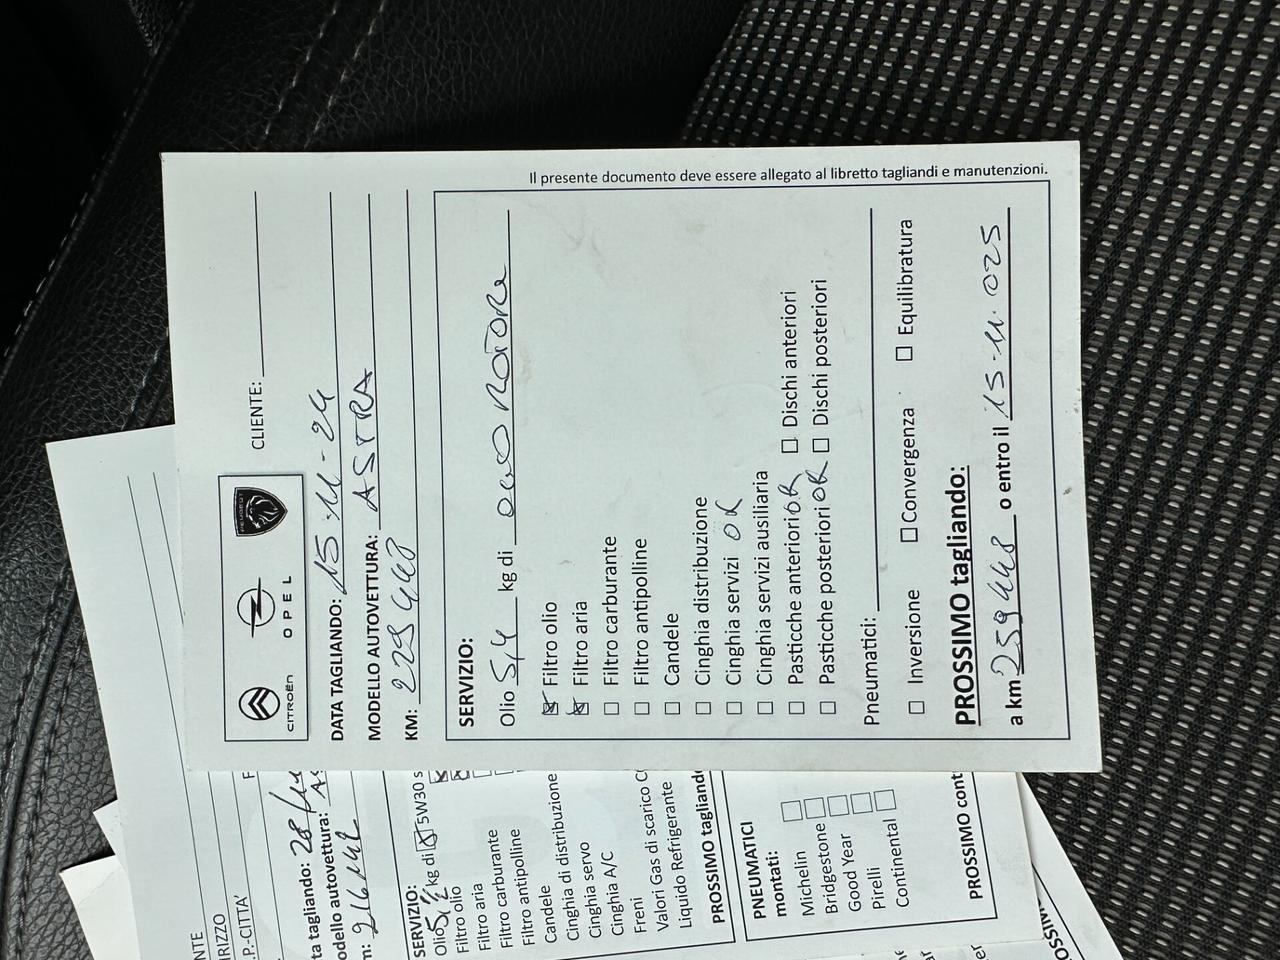 Il presente documento deve essere allegato al libretto tagliandi e manutenzioni.
PEUGEOT
CITROËN
OPEL
CLIENTE:
DATA TAGLIANDO: 15-11-24
MODELLO AUTOVETTURA: ASTRA
KM: 229448
SERVIZIO:
Olio 5,4 kg di olio motore
Filtro olio
Filtro aria
Filtro carburante
Filtro antipolline
Candele
Cinghia distribuzione
Cinghia servizi OK
Cinghia servizi ausiliaria
Pasticche anteriori OK Dischi anteriori
Pasticche posteriori OK Dischi posteriori
Pneumatici:
Inversione Convergenza Equilibratura
PROSSIMO tagliando:
a km 259448 o entro il 15-11-025
NTE
IRIZZO
.P.-CITTA'
ta tagliando: 28
odello autovettura:
m: 216142
SERVIZIO:
Olio kg di 5W30
Filtro olio
Filtro aria
Filtro carburante
Filtro antipolline
Candele
Cinghia di distribuzione
Cinghia servo
Cinghia A/C
Freni
Valori Gas di scarico
Liquido Refrigerante
PROSSIMO tagliand
PNEUMATICI
montati:
Michelin
Bridgestone
Good Year
Pirelli
Continental
PROSSIMO cont
OSSIM